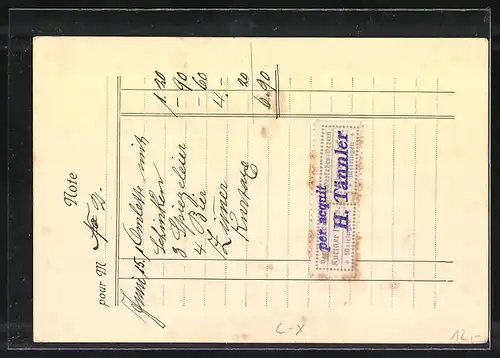 Note
pour M 2.
15. Omelette mit
Schinken 1.20
3 Spiegeleier –.90
4 Bier –.60
Zimmer 4.–
Kurtaxe .20
6.90
per acquit
H. Tännler
Kurtaxe
Meiringen
C-X
12,-